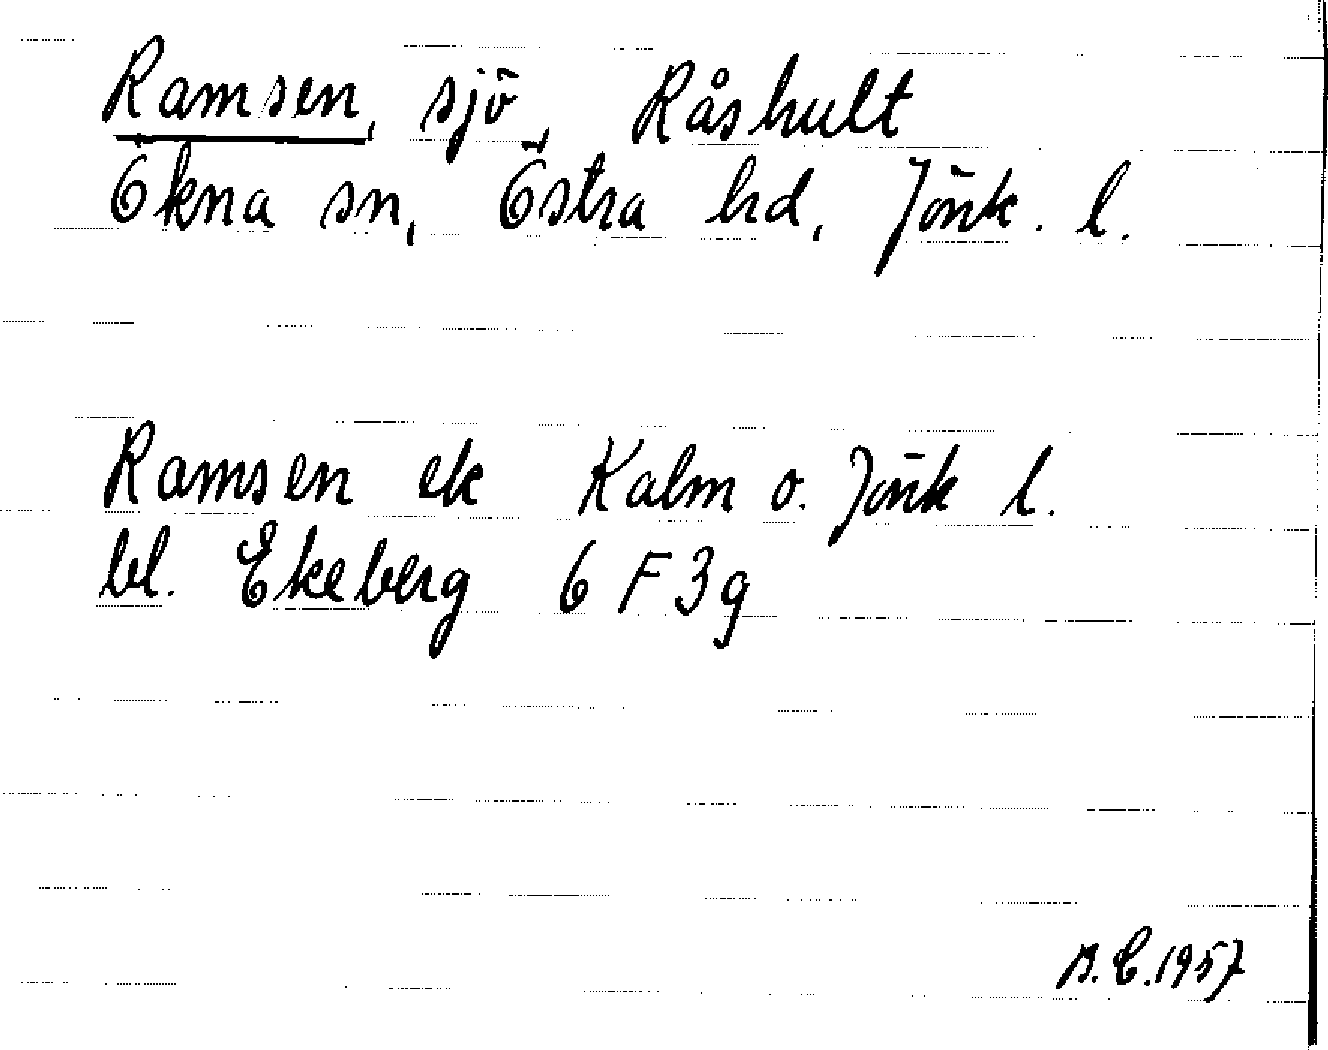 Ramsen, sjö, Råshult
Ökna sn, Östra hd, Jönk. l.
Ramsen ek Kalm o. Jönk l.
bl. Ekeberg 6 F 3g
B.E.1957